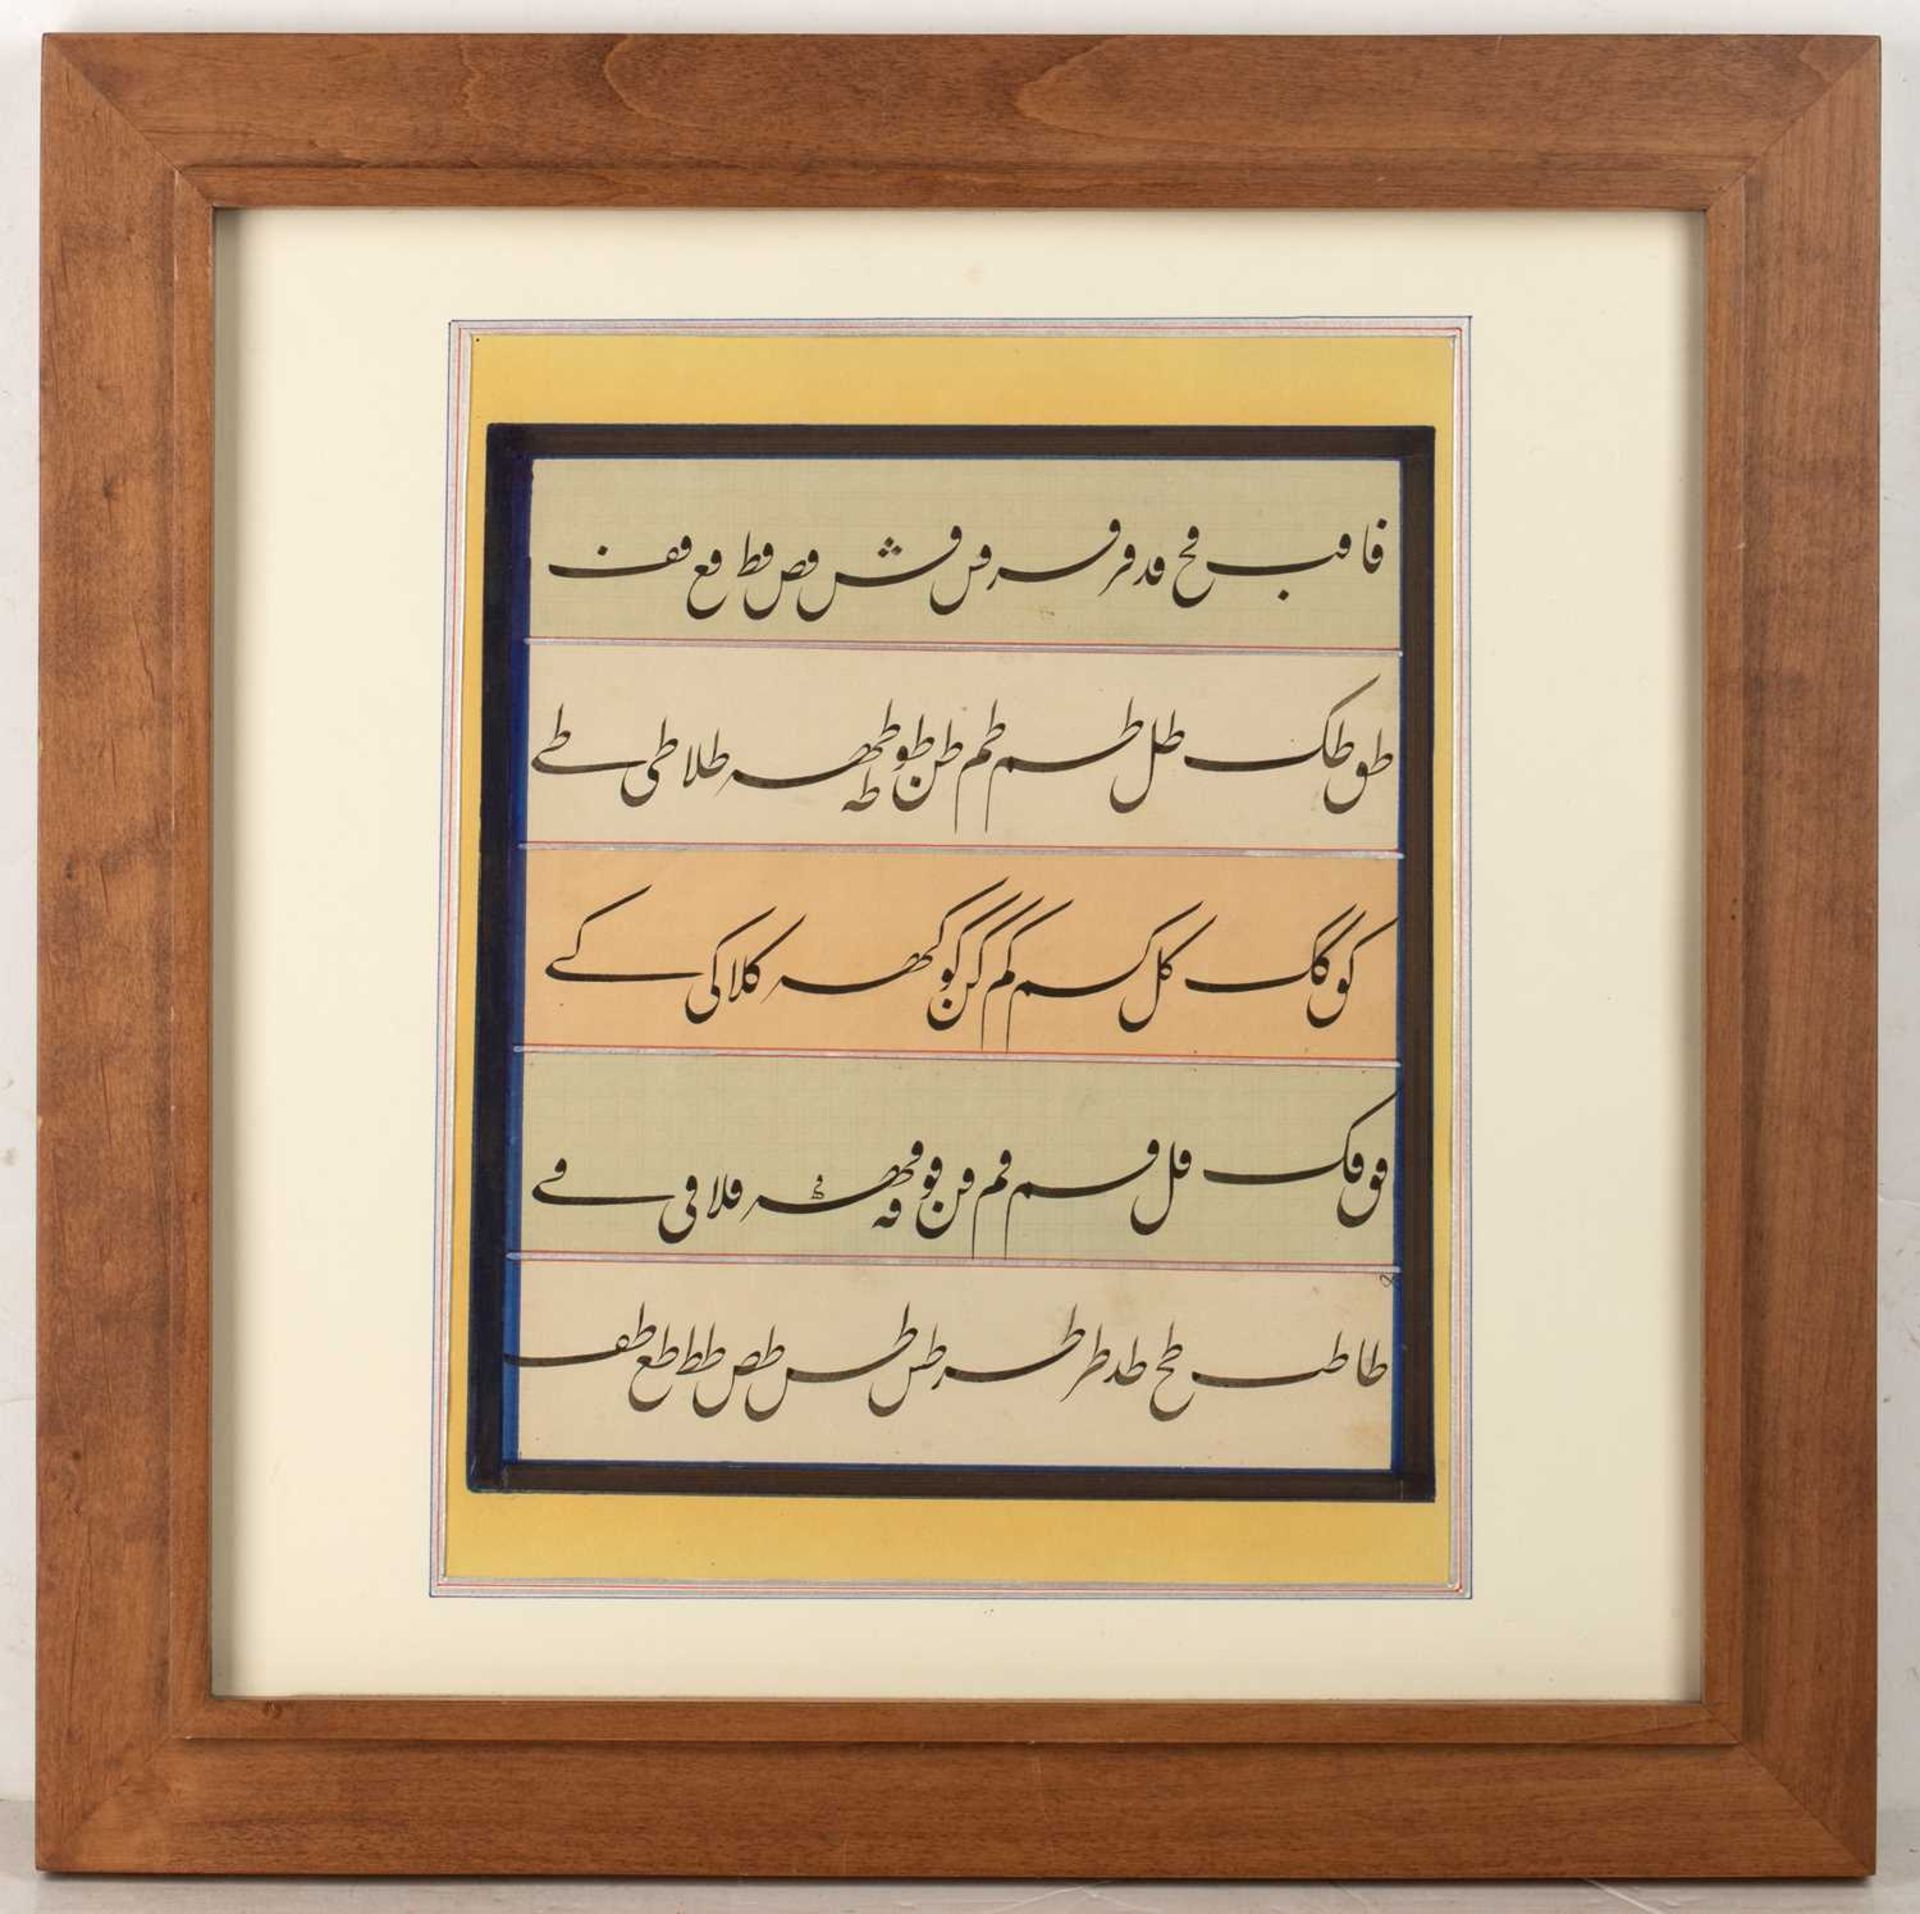 فا فب فح فد فر فس فس فش فص فط فع فف
طق طک طل طم طم طن طو طه طهہ طلا طی طے
کو کک کل کم کم کن کو کھہ کلا کی کے
فق فک فل فم فم فن فو فه فهہ فلا فی فے
طا طب طح طد طر طس طس طش طص طط طع طف